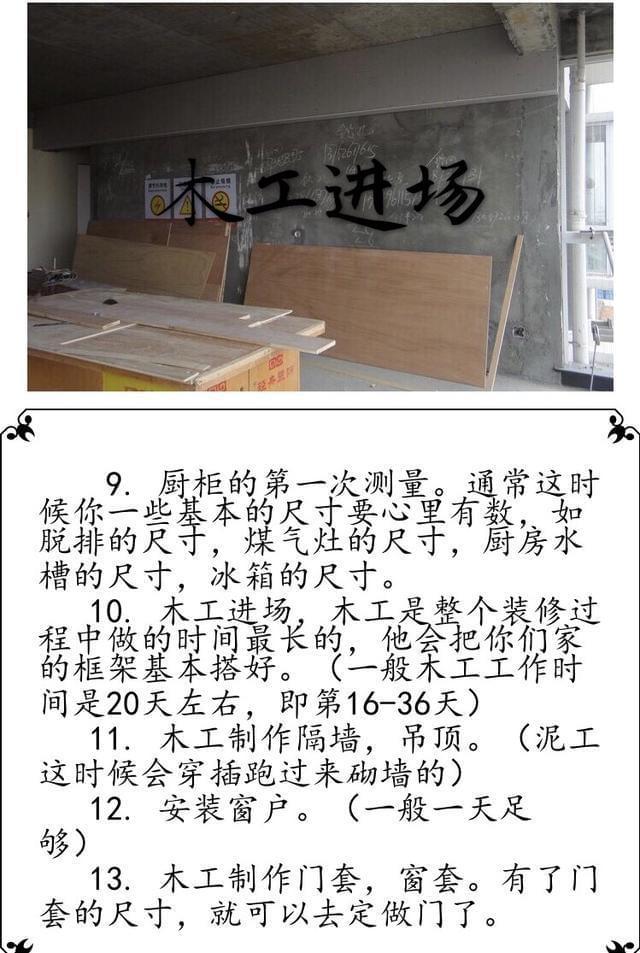 木工进场
9. 厨柜的第一次测量。通常这时
候你一些基本的尺寸要心里有数，如
脱排的尺寸，煤气灶的尺寸，厨房水
槽的尺寸，冰箱的尺寸。
10. 木工进场，木工是整个装修过
程中做的时间最长的，他会把你们家
的框架基本搭好。（一般木工工作时
间是20天左右，即第16-36天）
11. 木工制作隔墙，吊顶。（泥工
这时候会穿插跑过来砌墙的）
12. 安装窗户。（一般一天足
够）
13. 木工制作门套，窗套。有了门
套的尺寸，就可以去定做门了。